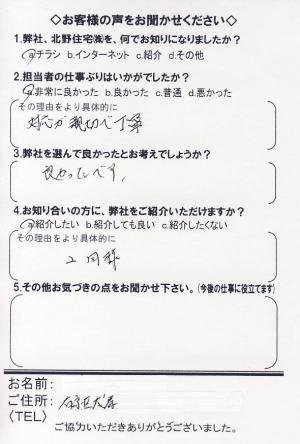 ◇お客様の声をお聞かせください◇
1.弊社、北野住宅㈱を、何でお知りになりましたか?
a.チラシ b.インターネット c.紹介 d.その他
2.担当者の仕事ぶりはいかがでしたか?
a.非常に良かった b.良かった c.普通 d.悪かった
その理由をより具体的に
対応が親切で丁寧
3.弊社を選んで良かったとお考えでしょうか?
良かったです。
4.お知り合いの方に、弊社をご紹介いただけますか?
a.紹介したい b.紹介しても良い c.紹介したくない
その理由をより具体的に
2 同様
5.その他お気づきの点をお聞かせ下さい。(今後の仕事に役立てます)
お名前:
ご住所:
〈TEL〉
ご協力いただきありがとうございました。